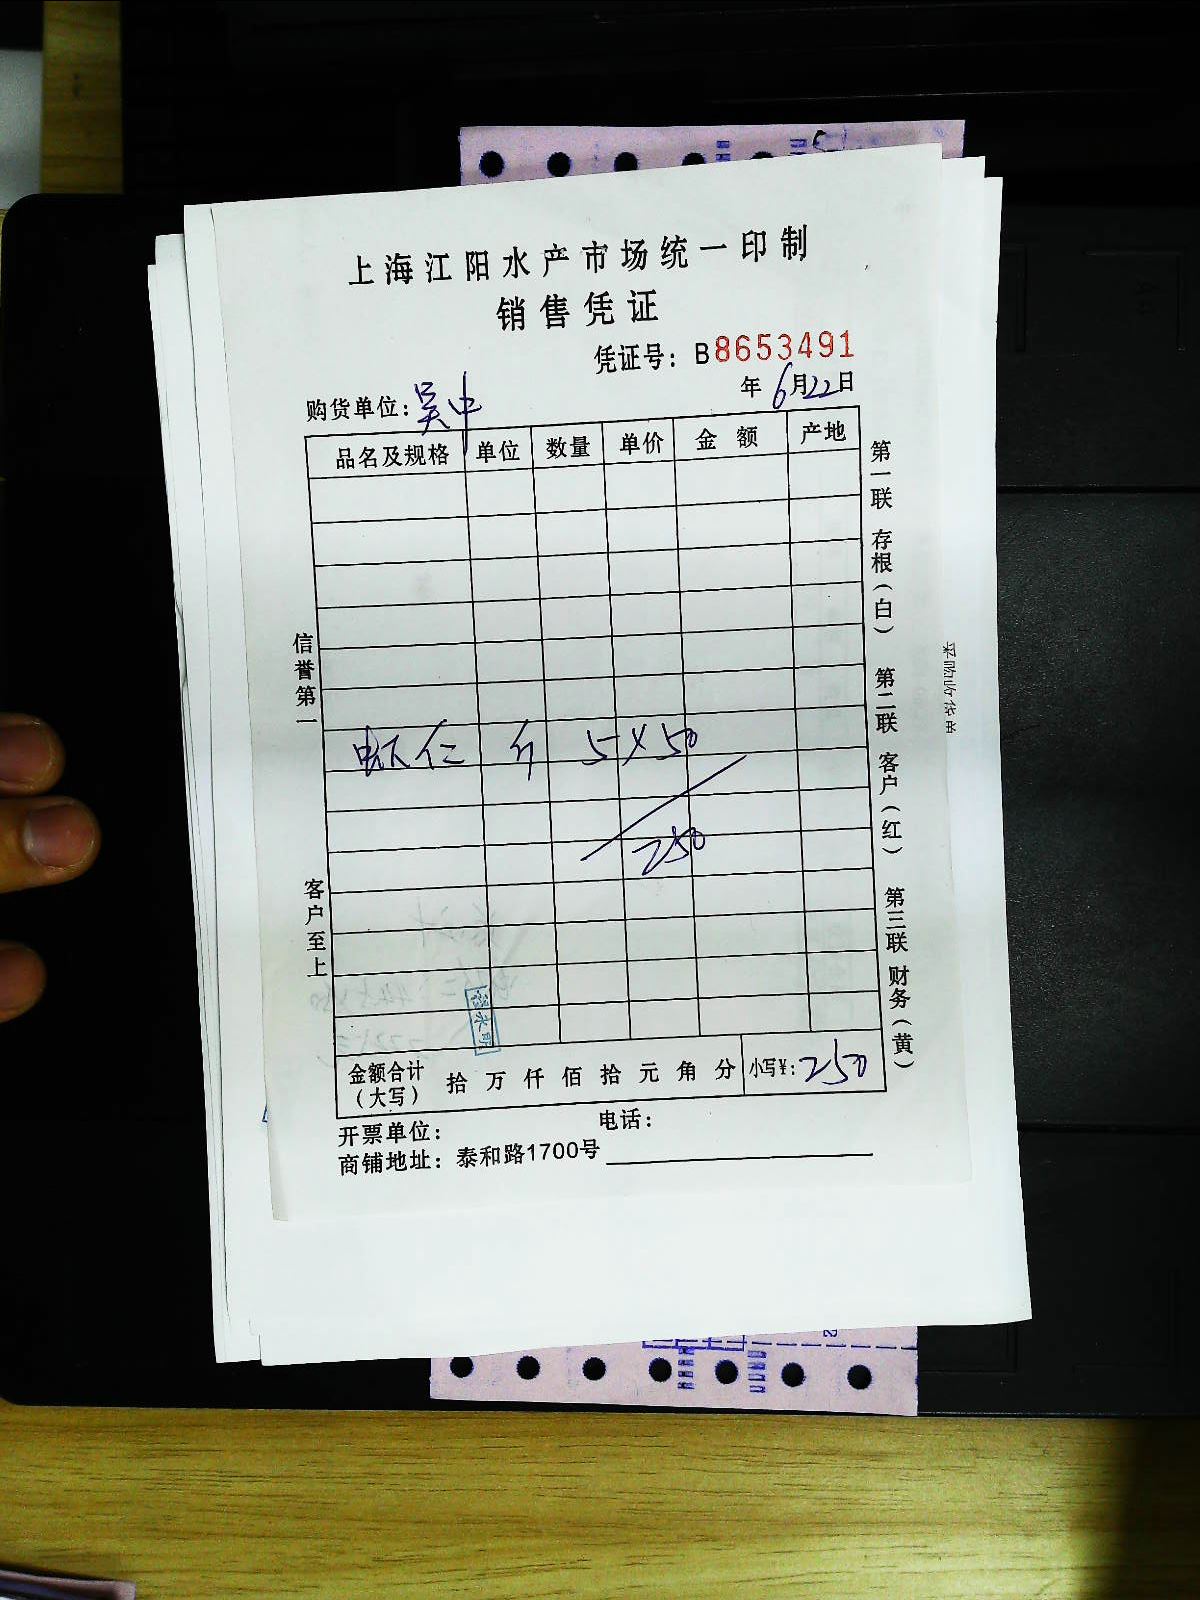 上海江阳水产市场统一印制
销售凭证
凭证号：B8653491
购货单位：吴中 年6月22日
品名及规格 单位 数量 单价 金额 产地
虾仁 斤 5×50
250
金额合计（大写） 拾 万 仟 佰 拾 元 角 分 小写¥：250
开票单位： 电话：
商铺地址：泰和路1700号
信誉第一
客户至上
第一联 存根（白） 第二联 客户（红） 第三联 财务（黄）